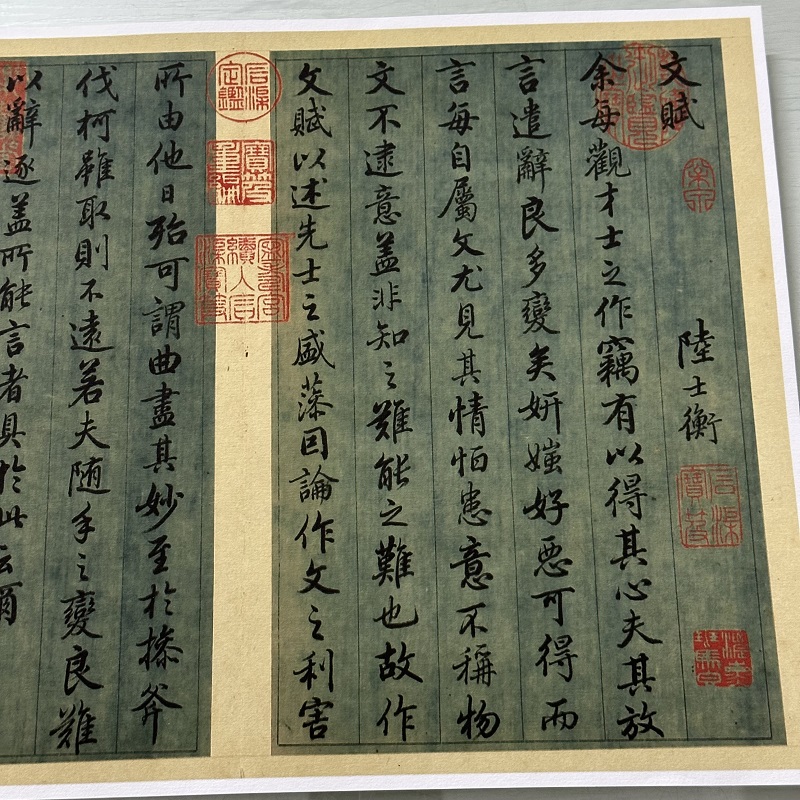 文賦
陸士衡
余每觀才士之作竊有以得其心夫其放
言遣辭良多變矣妍媸好惡可得而
言每自屬文尤見其情恒患意不稱物
文不逮意盖非知之難能之難也故作
文賦以述先士之盛藻因論作文之利害
所由他日殆可謂曲盡其妙至於操斧
伐柯雖取則不遠若夫随手之變良難
以辭逐盖所能言者具於此云爾
石渠定鑑
寶笈重編
寧壽宮續入石渠寶笈
石渠寶笈